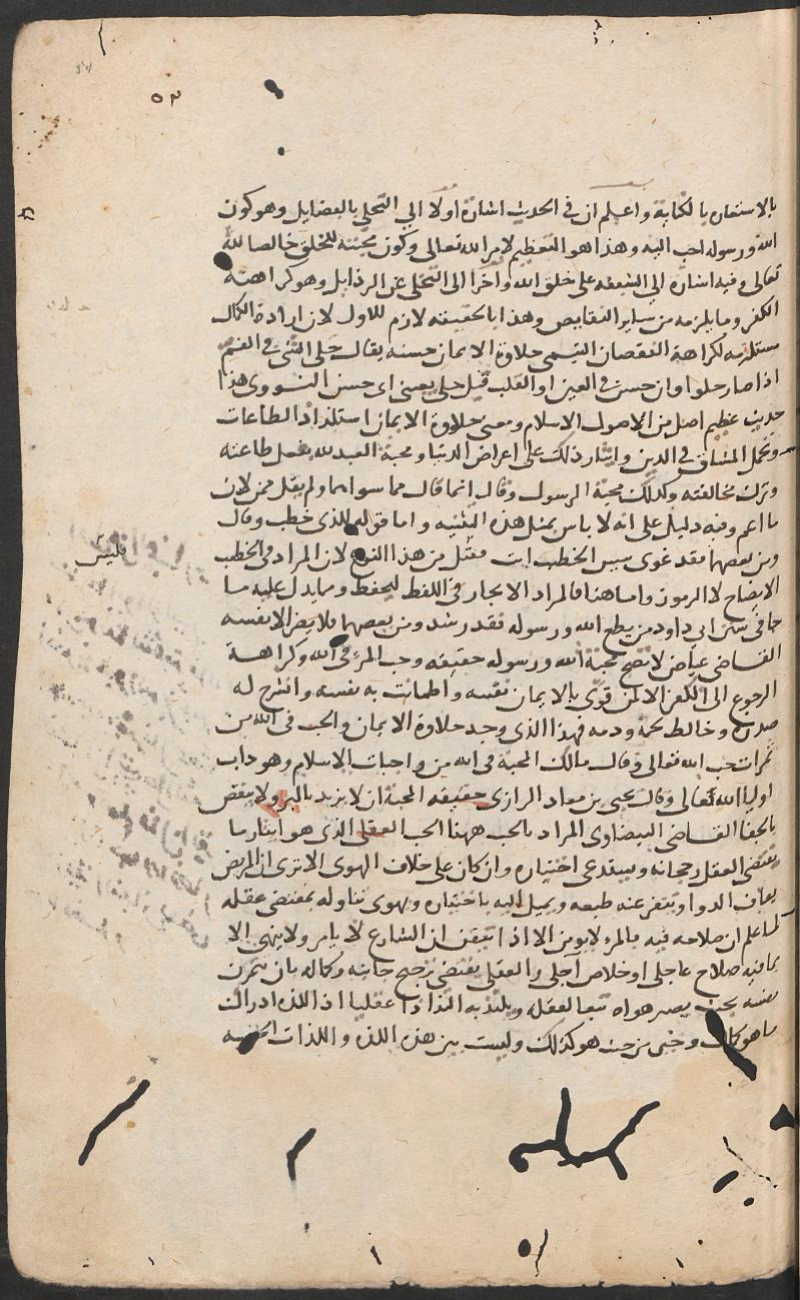 ٥٣
بالاستعاره بالكتابة واعلم ان في الحديث اشارة اولا الي التحلي بالفضايل وهو كون
الله ورسوله احب اليه وهذا هو التعظيم لامر الله تعالى وكون محبته للخلق خالصا لله
تعالى وفيه اشاره الي الشفقه على خلق الله واخرا الى التخلي عن الرذايل وهو كراهته
الكفر وما يلزمه من ساير النقايص وهذا بالحقيقه لازم للاول لان ارادة الكمال
مستلزمه لكراهة النقصان التيمى حلاوة الايمان حسنه يقال حلى الشئ في الفم
اذا صار حلوا وان حسن في العين او القلب قيل حلي بعيني اي حسن النووى هذا
حديث عظيم اصل من الاصول الاسلام ومعنى حلاوة الايمان استلذاذ الطاعات
وتحمل المشاق في الدين وايثار ذلك على اعراض الدنيا ومحبة العبد لله بفعل طاعته
وترك مخالفته وكذلك محبة الرسول وقال انما قال مما سواهما ولم يقل ممن لان
ما اعم وفيه دليل على انه لا باس بمثل هذه التثنيه واما قوله للذى خطب وقال
ومن يعصهما فقد غوى بيس الخطيب انت فليس من هذا النوع لان المراد في الخطب
فليس
الايضاح لا الرموز واما هنا فالمراد الايجاز في اللفظ ليحفظ ومما يدل عليه ما
جا في سنن ابي داود من يطع الله ورسوله فقد رشد ومن يعصهما فلا يضر الا نفسه
القاضي عياض لا تصح محبة الله ورسوله حقيقه وحب المرء في الله وكراهة
الرجوع الى الكفر الا لمن قوي بالايمان نفسه واطمانت به نفسه وانشرح له
صدره وخالط لحمه ودمه فهذا الذي وجد حلاوة الايمان والحب في الله من
ثمرات حب الله تعالى وقال مالك المحبة في الله من واجبات الاسلام وهو داب
اوليا الله تعالى وقال يحيى بن معاد الرازي حقيقه المحبة ان لا يزيد بالبر ولا ينقص
بالجفا القاضي البيضاوى المراد بالحب ههنا الحب العقلي الذي هو ايثار ما
يقتضي العقل رجحانه ويستدعي اختياره وان كان على خلاف الهوى الا ترى ان المريض
يعاف الدوا وينفر عنه طبعه ويميل اليه باختياره ويهوى تناوله بمقتضى عقله
لما علم ان صلاحه فيه فالمرء لا يومن الا اذا تيقن ان الشارع لا يامر ولا ينهي الا
بما فيه صلاح عاجلي او خلاص آجلي والعقل يقتضي ترجيح جانبه وكماله بان تمرن
نفسه بحيث يصير هواه تبعا لعقله ويلتذ به التذاذا عقليا اذ اللذه ادراك
ما هو كمال وخير من حيث هو كذلك وليست بين هذه اللذه واللذات الحسيه